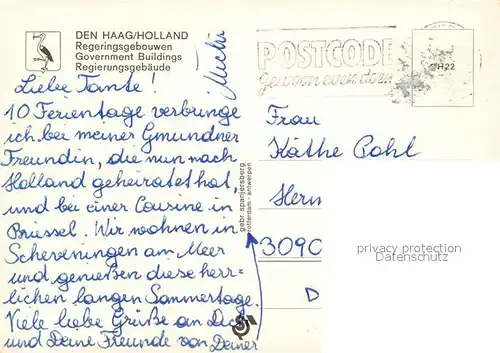 DEN HAAG/HOLLAND
Regeringsgebouwen
Government Buildings
Regierungsgebäude
Liebe Tante!
10 Ferientage verbringe
ich bei meiner Gmundner
Freundin, die nun nach
Holland geheiratet hat,
und bei einer Cousine in
Brüssel. Wir wohnen in
Scheveningen am Meer
und genießen diese herr=
lichen langen Sommertage.
Viele liebe Grüße an Dich
und Deine Freunde von Deiner
Michi
gebr. spanjersberg
rotterdam - antwerpen
POSTCODE
gewoon even doen
CH22
Frau
Käthe Pohl
Herm
3090
D
privacy protection
Datenschutz